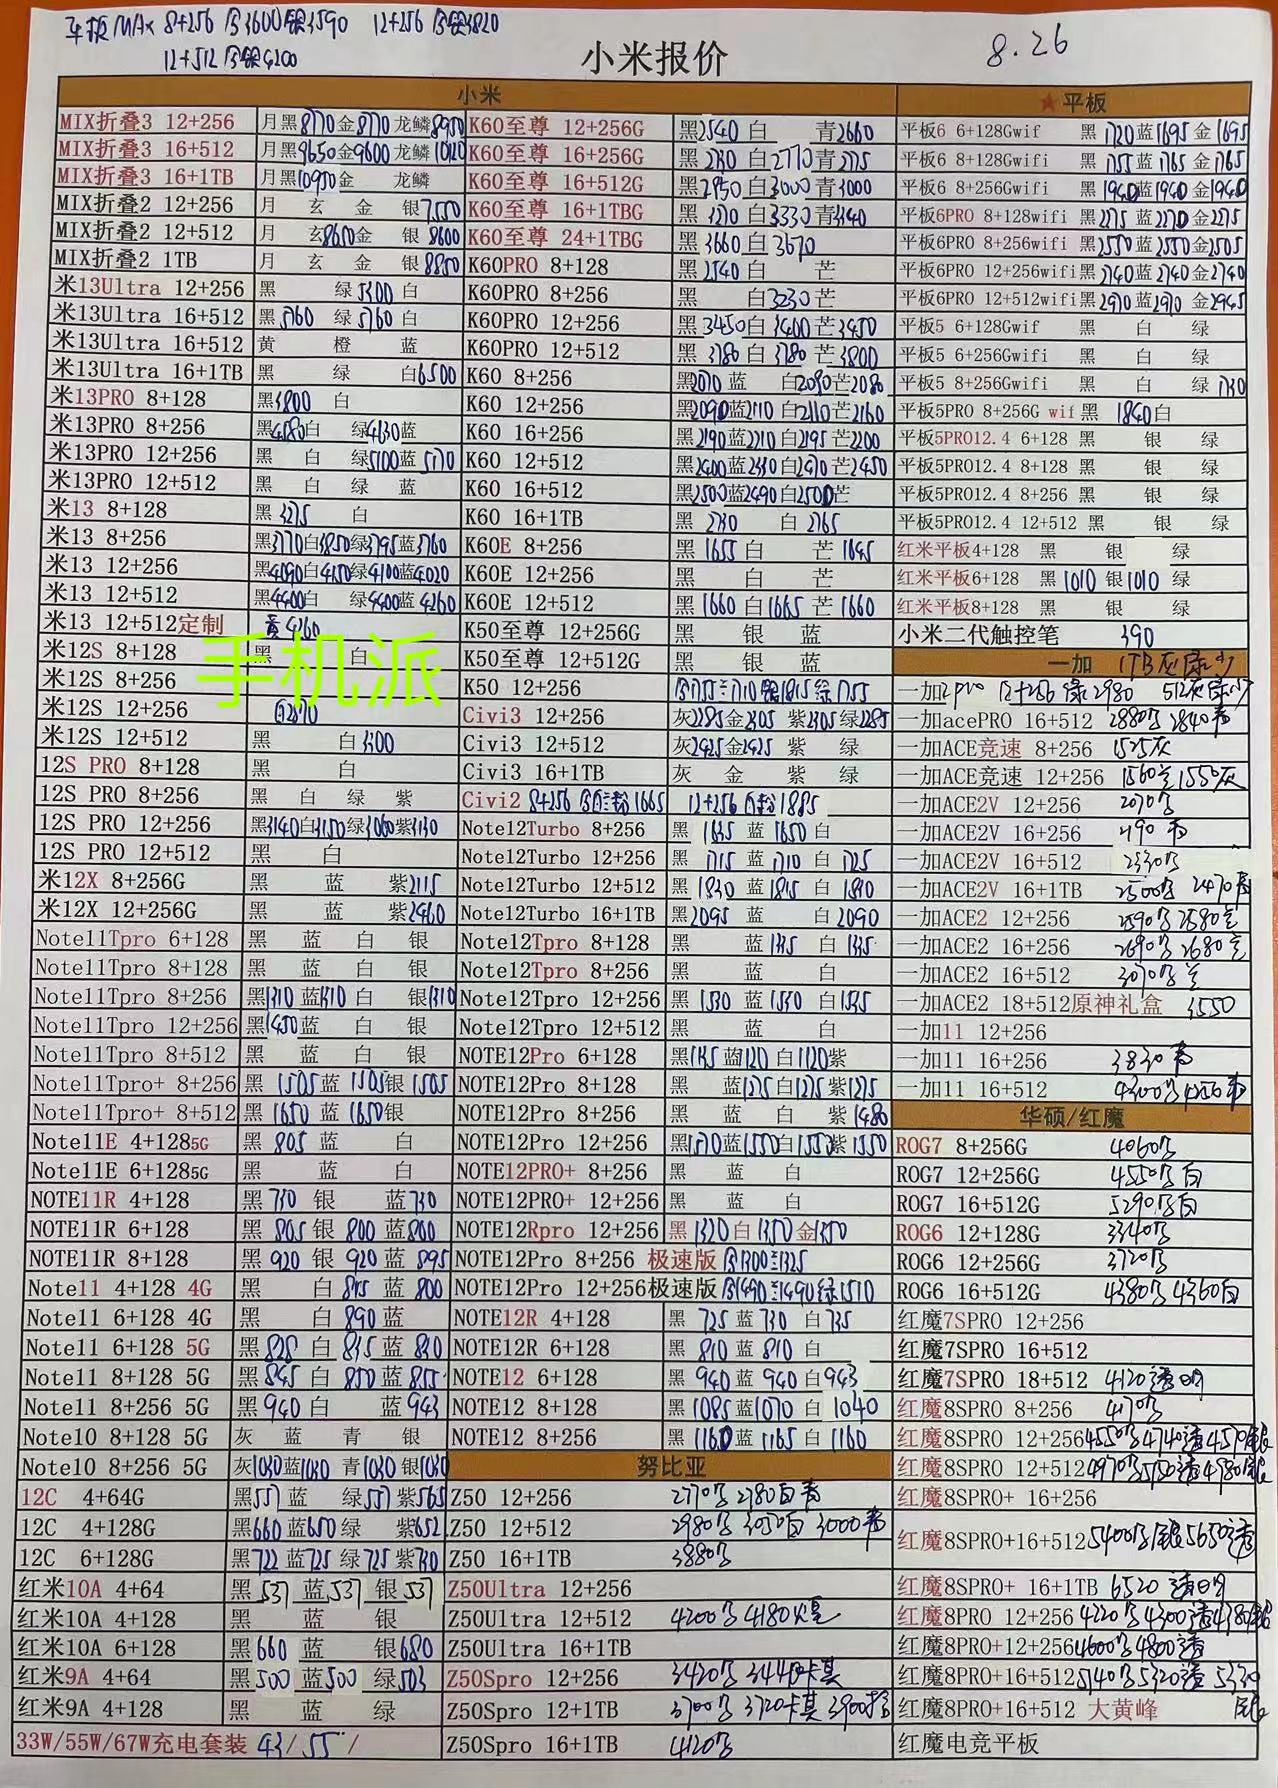 平板MAX 8+256 金3600银3590 12+256 金银3820
12+512 金银4200
小米报价
8.26
小米
MIX折叠3 12+256 月黑8770金8770龙鳞8950
MIX折叠3 16+512 月黑9650金9600龙鳞
MIX折叠3 16+1TB 月黑10950金 龙鳞
MIX折叠2 12+256 月 玄 金 银7550
MIX折叠2 12+512 月 玄8650金 银8600
MIX折叠2 1TB 月 玄 金 银8850
米13Ultra 12+256 黑 绿5300白
米13Ultra 16+512 黑5760 绿5760白
米13Ultra 16+512 黄 橙 蓝
米13Ultra 16+1TB 黑 绿 白6500
米13PRO 8+128 黑3800 白
米13PRO 8+256 黑4080白 绿4630蓝
米13PRO 12+256 黑 白 绿5100蓝5170
米13PRO 12+512 黑 白 绿 蓝
米13 8+128 黑3275 白
米13 8+256 黑3770白3850绿3795蓝3760
米13 12+256 黑4090白4150绿4100蓝4020
米13 12+512 黑4400白 绿4400蓝4260
米13 12+512定制 黄4260
米12S 8+128 黑 白
手机派
米12S 8+256
米12S 12+256 白2870
米12S 12+512 黑 白3300
12S PRO 8+128 黑 白
12S PRO 8+256 黑 白 绿 紫
12S PRO 12+256 黑3140白3150绿3060紫3130
12S PRO 12+512 黑 白
米12X 8+256G 黑 蓝 紫2115
米12X 12+256G 黑 蓝 紫2460
Note11Tpro 6+128 黑 蓝 白 银
Note11Tpro 8+128 黑 蓝 白 银
Note11Tpro 8+256 黑1310蓝1310白 银1310
Note11Tpro 12+256 黑1450蓝 白 银
Note11Tpro 8+512 黑 蓝 白 银
Note11Tpro+ 8+256 黑1505蓝1505银1505
Note11Tpro+ 8+512 黑1650蓝1650银
Note11E 4+1285G 黑805蓝 白
Note11E 6+1285G 黑 蓝 白
NOTE11R 4+128 黑730 银 蓝730
NOTE11R 6+128 黑805银800蓝800
NOTE11R 8+128 黑920银920蓝895
Note11 4+128 4G 黑 白815蓝800
Note11 6+128 4G 黑 白890蓝
Note11 6+128 5G 黑828白835蓝830
Note11 8+128 5G 黑845白850蓝855
Note11 8+256 5G 黑940白 蓝943
Note10 8+128 5G 灰 蓝 青 银
Note10 8+256 5G 灰1030蓝1030青1030银1030
12C 4+64G 黑557蓝 绿557紫565
12C 4+128G 黑660蓝650绿 紫652
12C 6+128G 黑722蓝725绿725紫730
红米10A 4+64 黑537蓝537银537
红米10A 4+128 黑 蓝 银
红米10A 6+128 黑660蓝 银680
红米9A 4+64 黑500蓝500绿503
红米9A 4+128 黑 蓝 绿
33W/55W/67W充电套装 43/55/
K60至尊 12+256G 黑2540白 青2660
K60至尊 16+256G 黑2730白2770青2775
K60至尊 16+512G 黑2950白3000青3000
K60至尊 16+1TBG 黑3270白3330青3340
K60至尊 24+1TBG 黑3660白3670
K60PRO 8+128 黑2540白 芒
K60PRO 8+256 黑 白3230芒
K60PRO 12+256 黑3450白3400芒3450
K60PRO 12+512 黑3780白3780芒3800
K60 8+256 黑2070蓝 白2090芒2080
K60 12+256 黑2090蓝2110白2110芒2160
K60 16+256 黑2190蓝2210白2195芒2200
K60 12+512 黑2400蓝2430白2470芒2450
K60 16+512 黑2500蓝2490白2500芒
K60 16+1TB 黑2730 白2765
K60E 8+256 黑1655白 芒1645
K60E 12+256 黑 白 芒
K60E 12+512 黑1660白1665芒1660
K50至尊 12+256G 黑 银 蓝
K50至尊 12+512G 黑 银 蓝
K50 12+256
Civi3 12+256 灰2285金2305紫2305绿2285
Civi3 12+512 灰2425金2425紫 绿
Civi3 16+1TB 灰 金 紫 绿
Civi2 8+256 1665 12+256 白粉1885
Note12Turbo 8+256 黑1635蓝1650白
Note12Turbo 12+256 黑1715蓝1710白1725
Note12Turbo 12+512 黑1830蓝1815白1810
Note12Turbo 16+1TB 黑2095蓝 白2090
Note12Tpro 8+128 黑 蓝1335白1335
Note12Tpro 8+256 黑 蓝 白
Note12Tpro 12+256 黑1530蓝1530白1535
Note12Tpro 12+512 黑 蓝 白
NOTE12Pro 6+128 黑1135蓝1120白1120紫
NOTE12Pro 8+128 黑 蓝1275白1275紫1275
NOTE12Pro 8+256 黑 蓝 白 紫1480
NOTE12Pro 12+256 黑1570蓝1550白1550紫1550
NOTE12PRO+ 8+256 黑 蓝 白
NOTE12PRO+ 12+256 黑 蓝 白
NOTE12Rpro 12+256 黑1320白1350金1350
NOTE12Pro 8+256 极速版
NOTE12Pro 12+256极速版
NOTE12R 4+128 黑725蓝730白735
NOTE12R 6+128 黑810蓝810白
NOTE12 6+128 黑940蓝940白943
NOTE12 8+128 黑1085蓝1070白1040
NOTE12 8+256 黑1160蓝1165白1160
努比亚
Z50 12+256 2770 2780白青
Z50 12+512 2980 3050白 3000青
Z50 16+1TB 3880
Z50Ultra 12+256
Z50Ultra 12+512 4200 4180
Z50Ultra 16+1TB
Z50Spro 12+256 3430 3440卡其
Z50Spro 12+1TB 3700 3720卡其
Z50Spro 16+1TB 4120
★平板
平板6 6+128Gwif 黑1720蓝1695金1695
平板6 8+128Gwifi 黑1755蓝1765金1765
平板6 8+256Gwifi 黑1940蓝1940金1940
平板6PRO 8+128wifi 黑2275蓝2270金2275
平板6PRO 8+256wifi 黑2550蓝2550金2505
平板6PRO 12+256wifi 黑2740蓝2740金2740
平板6PRO 12+512wifi 黑2970蓝2970金2945
平板5 6+128Gwif 黑 白 绿
平板5 6+256Gwifi 黑 白 绿
平板5 8+256Gwifi 黑 白 绿1730
平板5PRO 8+256G wif 黑1840白
平板5PRO12.4 6+128 黑 银 绿
平板5PRO12.4 8+128 黑 银 绿
平板5PRO12.4 8+256 黑 银 绿
平板5PRO12.4 12+512 黑 银 绿
红米平板4+128 黑 银 绿
红米平板6+128 黑1010银1010绿
红米平板8+128 黑 银 绿
小米二代触控笔 390
一加
一加2pro 12+256 绿2980
一加acePRO 16+512 2880 2840青
一加ACE竞速 8+256 1525灰
一加ACE竞速 12+256 1560 1550灰
一加ACE2V 12+256 2070
一加ACE2V 16+256 2190青
一加ACE2V 16+512 2330
一加ACE2V 16+1TB 2500 2470青
一加ACE2 12+256 2590 2580
一加ACE2 16+256 2690 2680
一加ACE2 16+512 3070
一加ACE2 18+512原神礼盒 3550
一加11 12+256
一加11 16+256 3830青
一加11 16+512 4300 4256青
华硕/红魔
ROG7 8+256G 4060
ROG7 12+256G 4550 白
ROG7 16+512G 5290 白
ROG6 12+128G 3340
ROG6 12+256G 3720
ROG6 16+512G 4380 4360白
红魔7SPRO 12+256
红魔7SPRO 16+512
红魔7SPRO 18+512 4120透明
红魔8SPRO 8+256 4170
红魔8SPRO 12+256 4550 4740透4570银
红魔8SPRO 12+512 4970 5130透4980银
红魔8SPRO+ 16+256
红魔8SPRO+16+512 5400 银5650透
红魔8SPRO+ 16+1TB 6520透明
红魔8PRO 12+256 4220 4300透4380银
红魔8PRO+12+256 4600 4800透
红魔8PRO+16+512 5140 5320透 5330银
红魔8PRO+16+512 大黄峰
红魔电竞平板